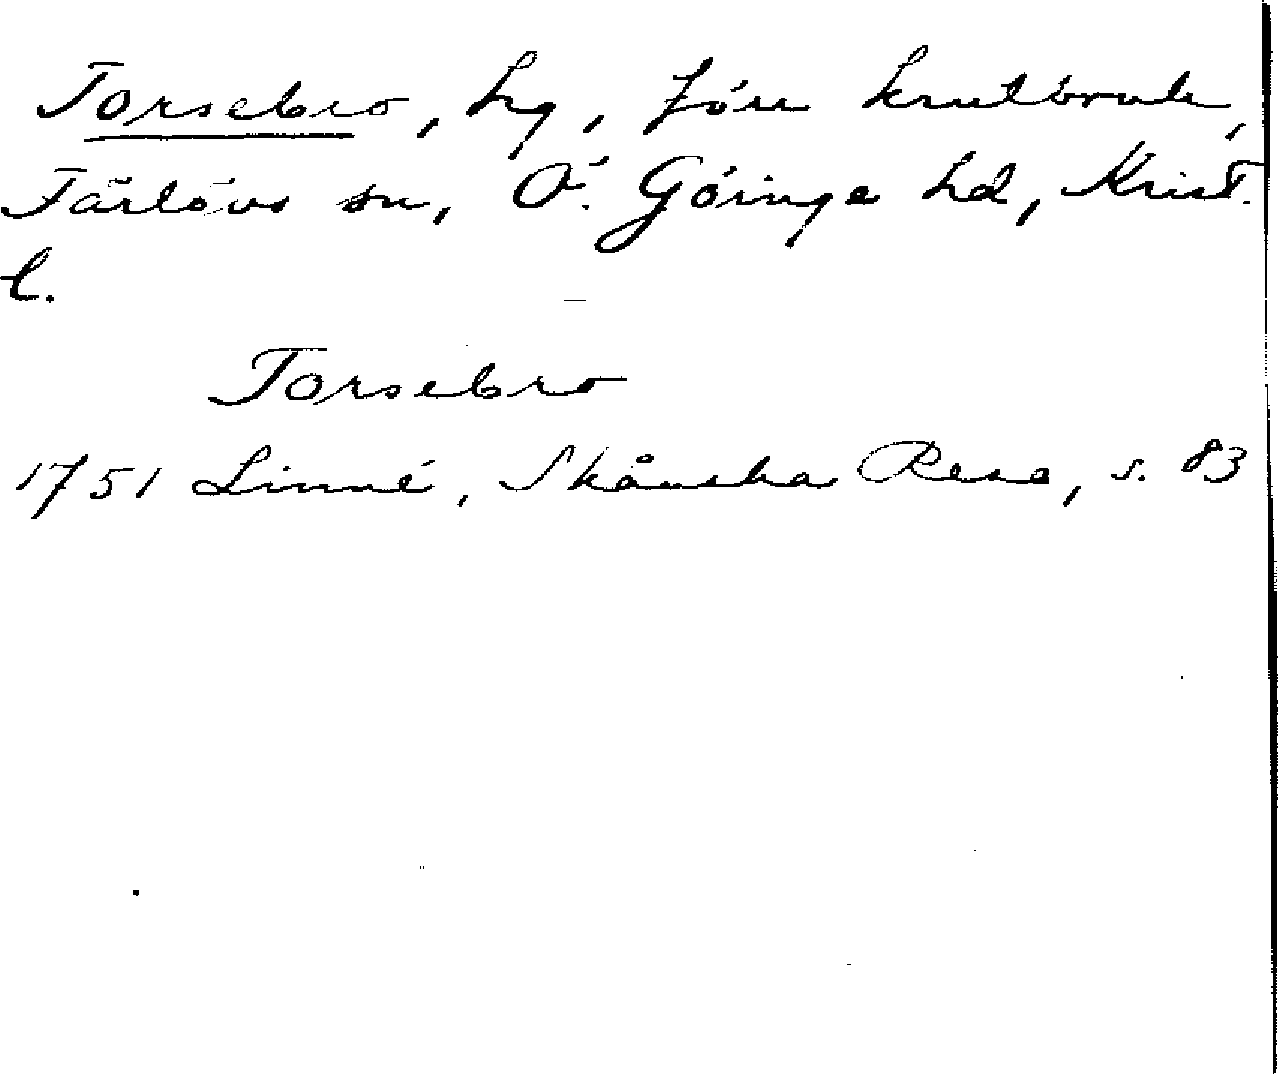 Torsebro, hg, förr krutbruk,
Färlövs sn, Ö. Göinge hd, Krist.
l.
Torsebro
1751 Linné, Skånska Resa, s. 83